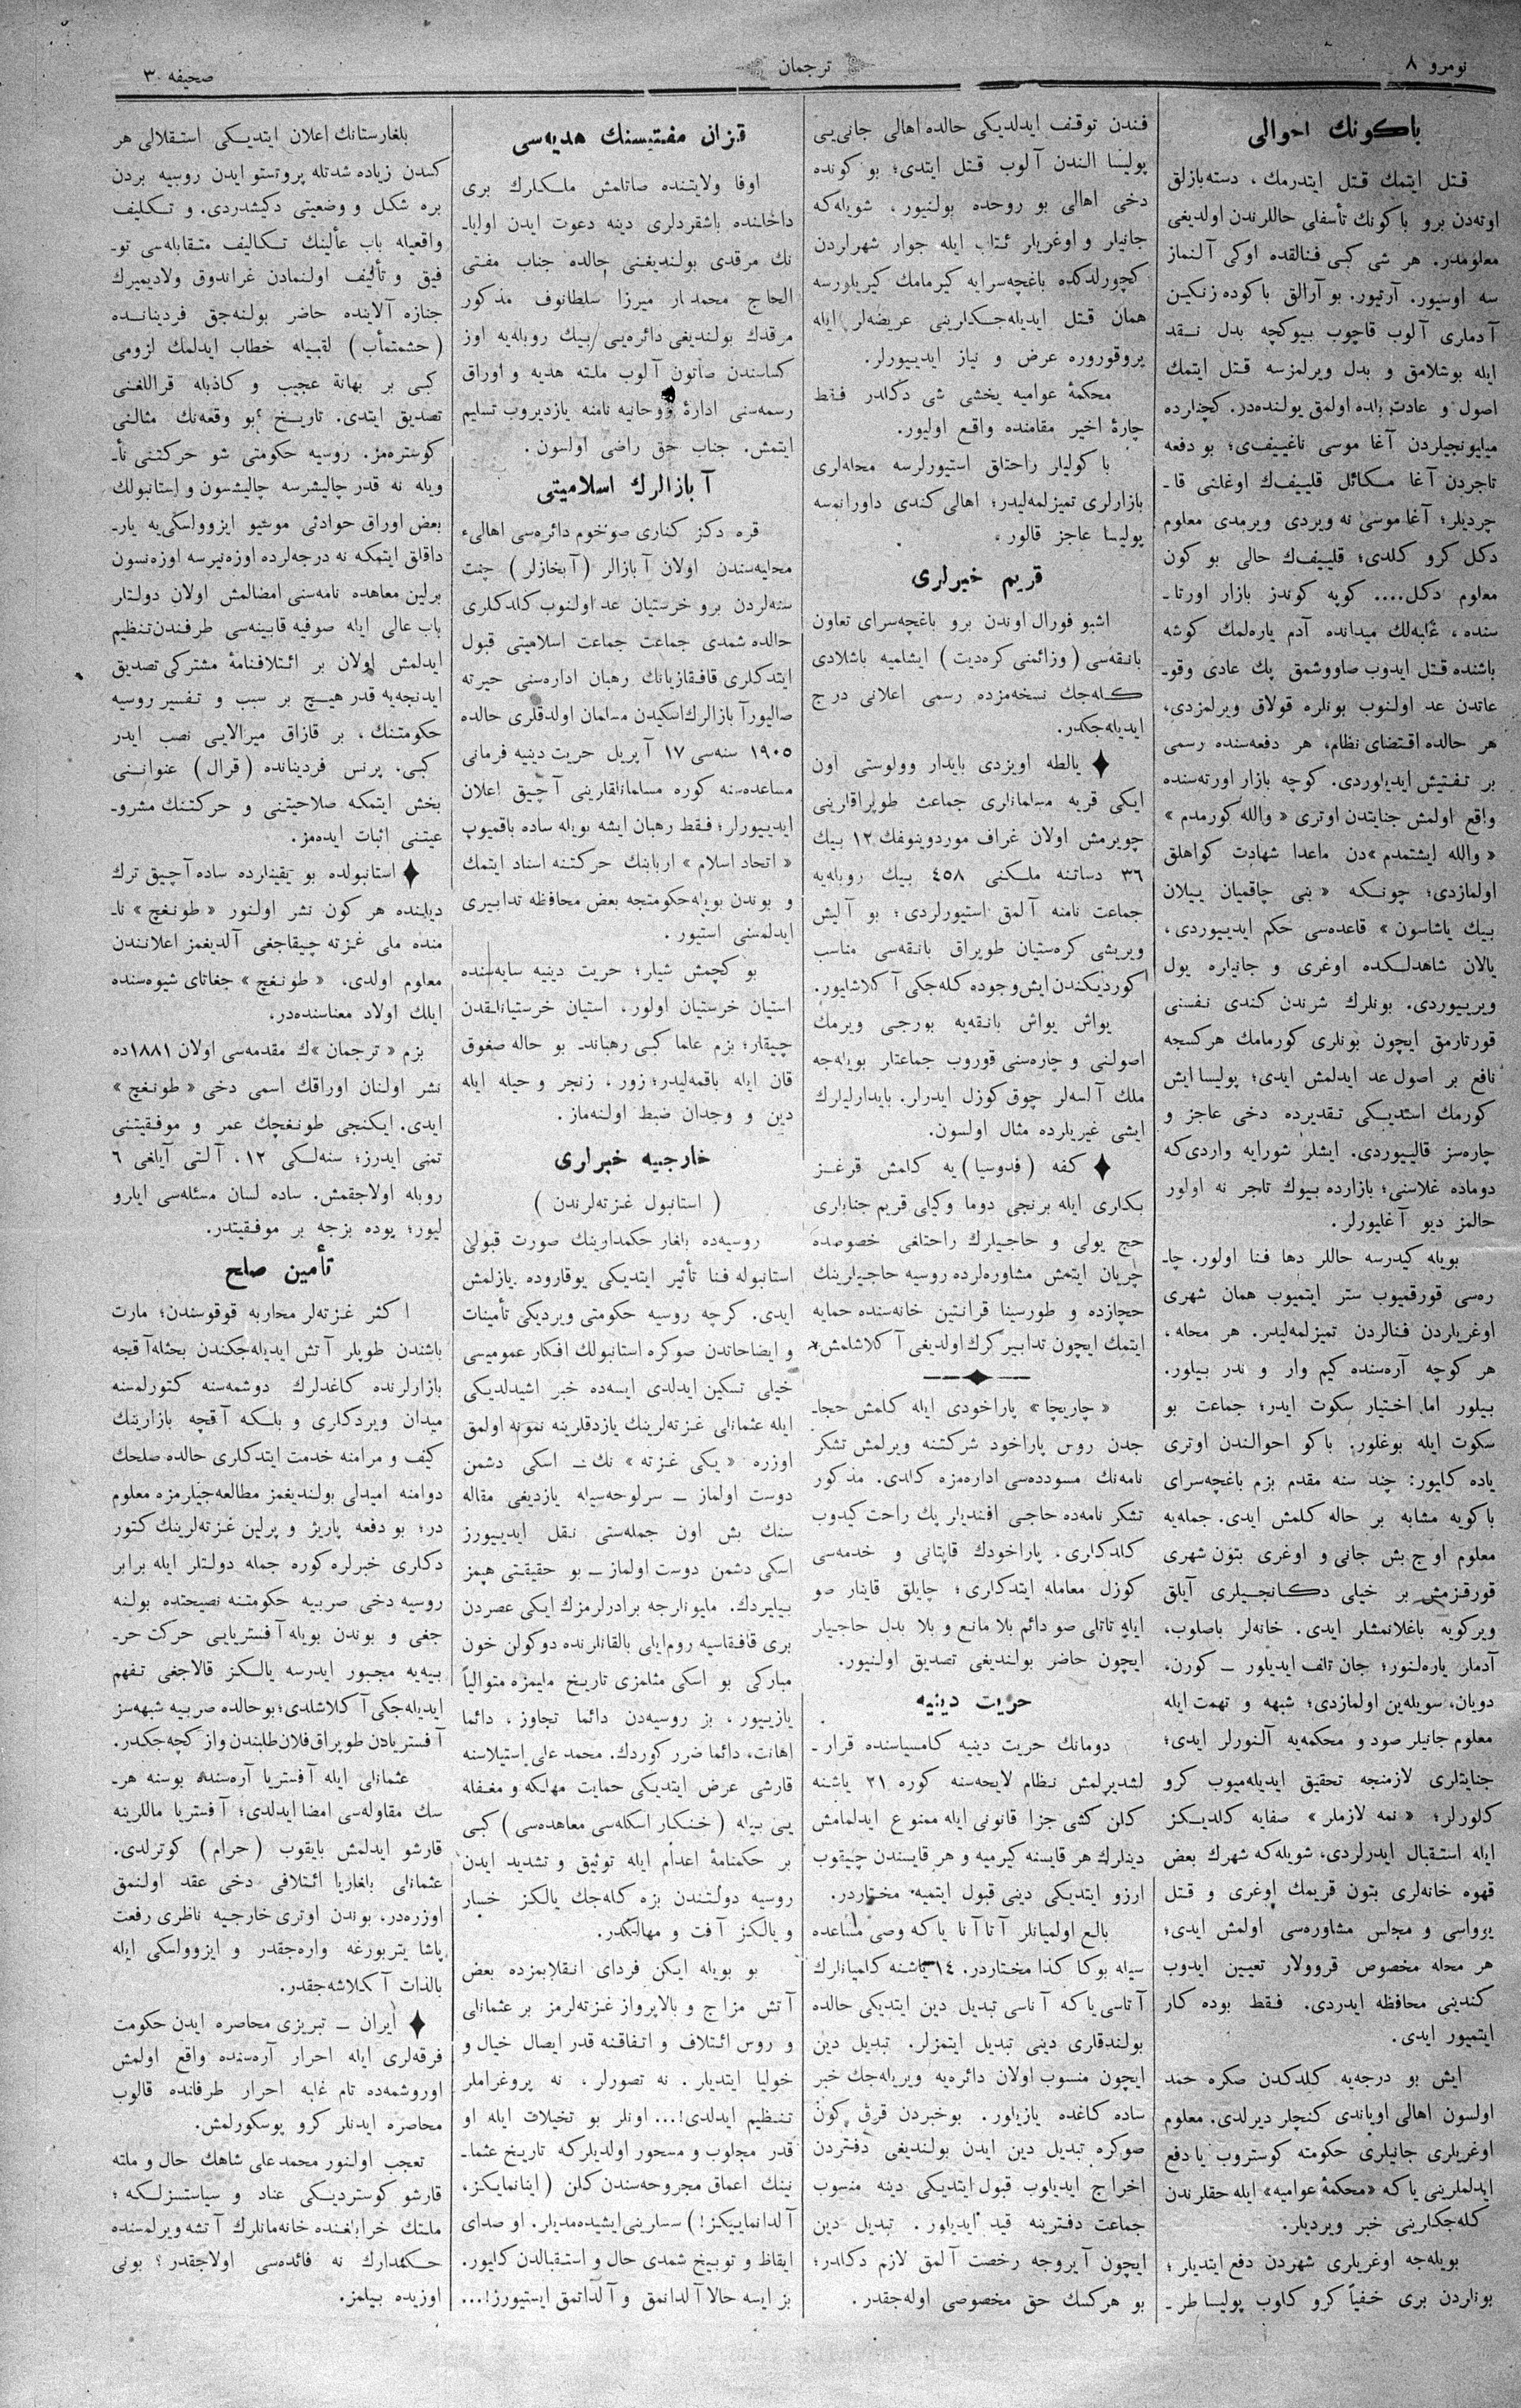 نومرو ٨
ترجمان
صحیفه ٣
باكونك احوالی
قتل ایتمك قتل ایتدرمك، دسته‌بازلق
اوته‌دن برو باكونك تأسفلی حاللرندن اولدیغی
معلومدر. هر شی كبی فنالقده اوكی آلنماز
سه اوسیور. آرتیور. بو آرالق باكوده زنكین
آدملری آلوب قاچوب بیوكچه بدل نقد
ایله بوشلامق و بدل ویرلمزسه قتل ایتمك
اصول و عادت بلده اولمق یولنده‌در. كچنلرده
میلیونجیلردن آغا موسی ناغییف‌ی؛ بو دفعه
تاجردن آغا میكائل قلییفك اوغلنی قا-
چردیلر؛ آغا موسی نه ویردی ویرمدی معلوم
دكل كرو كلدی؛ قلییفك حالی بو كون
معلوم دكل.... كوپه كوندز بازار اورتا-
سنده، غلبه‌لك میدانده آدم یاره‌لمك كوشه
باشنده قتل ایدوب صاووشمق پك عادی وقو-
عاتدن عد اولنوب بونلره قولاق ویرلمزدی،
هر حالده اقتضای نظام، هر دفعه‌سنده رسمی
بر تفتیش ایدیلوردی. كوچه بازار اورته‌سنده
واقع اولمش جنایتدن اوتری « والله كورمدم »
« والله ایشتمدم »دن ماعدا شهادت كواهلق
اولمازدی؛ چونكه « بنی چاقمیان ییلان
بیك یاشاسون » قاعده‌سی حكم ایدییوردی،
یالان شاهدلكده اوغری و جانیلره یول
ویرییوردی. بونلرك شرندن كندی نفسنی
قورتارمق ایچون بونلری كورمامك هركسجه
نافع بر اصول عد ایدلمش ایدی؛ پولیسا ایش
كورمك استدیكی تقدیرده دخی عاجز و
چاره‌سز قالییوردی. ایشلر شورایه واردی‌كه
دوماده غلاسنی؛ بازارده بیوك تاجر نه اولور
حالمز دیو آغلیورلر.
بویله كیدرسه حاللر دها فنا اولور. چا-
ره‌سی قورقمیوب ستر ایتمیوب همان شهری
اوغریلردن فنالردن تمیزلمه‌لیدر. هر محله،
هر كوچه آره‌سنده كیم وار و ندر بیلور.
بیلور اما اختیار سكوت ایدر؛ جماعت بو
سكوت ایله بوغلور. باكو احوالندن اوتری
یاده كلیور: چند سنه مقدم بزم باغچه‌سرای
باكویه مشابه بر حاله كلمش ایدی. جمله‌یه
معلوم اوچ بش جانی و اوغری بتون شهری
قورقزمش بر خیلی دكانجیلری آیلق
ویركویه باغلانمشلر ایدی. خانه‌لر باصلوب،
آدملر یاره‌لنور؛ جان تلف ایدیلور - كورن،
دویان، سویله‌ین اولمازدی؛ شبهه و تهمت ایله
معلوم جانیلر صود و محكمه‌یه آلنورلر ایدی؛
جنایتلری لازمنجه تحقیق ایدیله‌میوب كرو
كلورلر؛ « نمه لازملر » صفایه كلدیكز
ایله استقبال ایدرلردی، شویله‌كه شهرك بعض
قهوه خانه‌لری بتون قریمك اوغری و قتل
یرواسی و مجلس مشاوره‌سی اولمش ایدی؛
هر محله مخصوص قروولار تعیین ایدوب
كندینی محافظه ایدردی. فقط بوده كار
ایتمیور ایدی.
ایش بو درجه‌یه كلدكدن صكره حمد
اولسون اهالی اویاندی كنجلر دیرلدی. معلوم
اوغریلری جانیلری حكومته كوستروب یا دفع
ایدلملرینی یاكه «محكمۀ عوامیه» ایله حقلرندن
كله‌جكلرینی خبر ویردیلر.
بویله‌جه اوغریلری شهردن دفع ایتدیلر؛
بونلردن بری خفیاً كرو كلوب پولیسا طر-
فندن توقف ایدلدیكی حالده اهالی جانی‌یی
پولیسا الندن آلوب قتل ایتدی؛ بو كونده
دخی اهالی بو روحده بولنیور، شویله‌كه
جانیلر و اوغریلر ایله جوار شهرلردن
كچورلدكده باغچه‌سرایه كیرمامك كیریلورسه
همان قتل ایدیله‌جكلرینی عریضه‌لر ایله
پروقوروره عرض و نیاز ایدییورلر.
محكمۀ عوامیه یخشی شی دكلدر فقط
چارۀ اخیر مقامنده واقع اولیور.
باكولیلر راحتلق استیورلرسه محله‌لری
بازارلری تمیزلمه‌لیدر؛ اهالی كندی داورانمسه
پولیسا عاجز قالور.
قریم خبرلری
اشبو فورال اوندن برو باغچه‌سرای تعاون
بانقه‌سی (وزائمنی كره‌دیت) ایشلمیه باشلادی
كله‌جك نسخه‌مزده رسمی اعلانی درج
ایدیله‌جكدر.
♦ یالطه اویزدی بایدار وولوستی اون
ایكی قریه مسلمانلری جماعت طوپراقلرینی
چویرمش اولان غراف موردوینوفك ١٢ بیك
٣٦ دساتنه ملكنی ٤٥٨ بیك روبله‌یه
جماعت نامنه آلمق استیورلردی؛ بو آلیش
ویریشی كره‌ستیان طوپراق بانقه‌سی مناسب
كوردیكندن ایش وجوده كله‌جكی آكلاشلیور.
یواش یواش بانقه‌یه بورجی ویرمك
اصولنی و چاره‌سنی قوروب جماعتلر بویله‌جه
ملك آلسه‌لر چوق كوزل ایدرلر. بایدارلیلرك
ایشی غیریلرده مثال اولسون.
♦ كفه (فدوسیا)یه كلمش قرغز
بكلری ایله برنجی دوما وكیلی قریم جنابلری
حج یولی و حاجیلرك راحتلغی خصوصده
جریان ایتمش مشاوره‌لرده روسیه حاجیلرینك
حجازده و طورسینا قرانتین خانه‌سنده حمایه
ایتمك ایچون تدابیر كرك اولدیغی آكلاشلمش
« چاریچا » پاراخودی ایله كلمش حجا-
جدن روس پاراخود شركتنه ویرلمش تشكر
نامه‌نك مسودده‌سی اداره‌مزه كلدی. مذكور
تشكر نامه‌ده حاجی افندیلر پك راحت كیدوب
كلدكلری. پاراخودك قاپتانی و خدمه‌سی
كوزل معامله ایتدكلری؛ چایلق قاینار صو
ایله تاتلی صو دائم بلا مانع و بلا بدل حاجیلر
ایچون حاضر بولندیغی تصدیق اولنیور.
حریت دینیه
دومانك حریت دینیه كامسیاسنده قرار-
لشدیرلمش نظام لایحه‌سنه كوره ٢١ یاشنه
كلن كشی جزا قانونی ایله ممنوع ایدلمامش
دینلرك هر قایسنه كیرمیه و هر قایسندن چیقوب
ارزو ایتدیكی دینی قبول ایتمیه مختاردر.
بالع اولمیانلر آتا آنا یاكه وصی مساعده
سیله بوكا كذا مختاردر. ١٤ یاشنه كلمیانلرك
آتاسی یاكه آناسی تبدیل دین ایتدیكی حالده
بولندقلری دینی تبدیل ایتمزلر. تبدیل دین
ایچون منسوب اولان دائره‌یه ویریله‌جك خبر
ساده كاغده یازیلور. بوخبردن قرق كون
صوكره تبدیل دین ایدن بولندیغی دفتردن
اخراج ایدیلوب قبول ایتدیكی دینه منسوب
جماعت دفترینه قید ایدیلور. تبدیل دین
ایچون آیروجه رخصت آلمق لازم دكلدر؛
بو هركسك حق مخصوصی اوله‌جقدر.
قزان مفتیسنك هدیه‌سی
اوفا ولایتنده صاتلمش ملكلرك بری
داخلنده باشقردلری دینه دعوت ایدن اولیا-
نك مرقدی بولندیغنی حالده جناب مفتی
الحاج محمدیار میرزا سلطانوف مذكور
مرقدك بولندیغی دائره‌یی بیك روبله‌یه اوز
كساسندن صاتون آلوب ملته هدیه و اوراق
رسمه‌سنی ادارۀ روحانیه نامنه یازدیروب تسلیم
ایتمش. جناب حق راضی اولسون.
آبازالرك اسلامیتی
قره دكز كناری صوخوم دائره‌سی اهالیء
محلیه‌سندن اولان آبازالر (آبخازلر) چنت
سنه‌لردن برو خرستیان عد اولنوب كلدكلری
حالده شمدی جماعت جماعت اسلامیتی قبول
ایتدكلری قافقازیانك رهبان اداره‌سنی حیرته
صالیور آبازالرك اسكیدن مسلمان اولدقلری حالده
١٩٠٥ سنه‌سی ١٧ آپریل حریت دینیه فرمانی
مساعده‌سنه كوره مسلمانلقلرینی آچیق اعلان
ایدییورلر؛ فقط رهبان ایشه بویله ساده باقمیوب
« اتحاد اسلام » اربابنك حركتنه اسناد ایتمك
و بوندن بویله حكومتجه بعض محافظه تدابیری
ایدلمسنی استیور.
بو كچمش شیلر؛ حریت دینیه سایه‌سنده
استیان خرستیان اولور، استیان خرستیانلقدن
چیقار؛ بزم علما كبی رهبانده بو حاله صغوق
قان ایله باقمه‌لیدر؛ زور، زنجر و حیله ایله
دین و وجدان ضبط اولنه‌ماز.
خارجییه خبرلری
(استانبول غزته‌لرندن)
روسیه‌ده بلغار حكمدارینك صورت قبولی
استانبوله فنا تأثیر ایتدیكی یوقاروده یازلمش
ایدی. كرچه روسیه حكومتی ویردیكی تأمینات
و ایضاحاتدن صوكره استانبولك افكار عمومیسی
خیلی تسكین ایدلدی ایسه‌ده خبر اشیدلدیكی
ایله عثمانلی غزته‌لرینك یازدقلرینه نمونه اولمق
اوزره « یكی غزته » نك - اسكی دشمن
دوست اولماز - سرلوحه‌سیله یازدیغی مقاله
سنك بش اون جمله‌ستی نقل ایدییورز
اسكی دشمن دوست اولماز - بو حقیقتی هپمز
بیلیردك. ملیونلرجه برادرلرمزك ایكی عصردن
بری قافقاسیه روم‌ایلی بالقانلرنده دوكولن خون
مباركی بو اسكی مثلمزی تاریخ ملیمزه متوالیاً
یازییور، بز روسیه‌دن دائما تجاوز، دائما
اهانت، دائما ضرر كوردك. محمد علی استیلاسنه
قارشی عرض ایتدیكی حمایت مهلكه و مغفله
یی بیله (خنكار اسكله‌سی معاهده‌سی) كبی
بر حكمنامۀ اعدام ایله توثیق و تشدید ایدن
روسیه دولتندن بزه كله‌جك یالكز خسار
و یالكز آفت و مهالكدر.
بو بویله ایكن فردای انقلابمزده بعض
آتش مزاج و بالاپرواز غزته‌لرمز بر عثمانلی
و روس ائتلاف و اتفاقنه قدر ایصال خیال و
خولیا ایتدیلر. نه تصورلر، نه پروغراملر
تنظیم ایدلدی!... اونلر بو تخیلات ایله او
قدر مجلوب و مسحور اولدیلركه تاریخ عثما-
نینك اعماق مجروحه‌سندن كلن (اینانمایكز،
آلدانماییكز!) سسلرینی ایشیده‌مدیلر. او صدای
ایقاظ و توبیخ شمدی حال و استقبالدن كلیور.
بز ایسه حالا آلدانمق و آلداتمق ایستیورز!...
بلغارستانك اعلان ایتدیكی استقلالی هر
كسدن زیاده شدتله پروتستو ایدن روسیه بردن
بره شكل و وضعیتی دكیشدردی. و تكلیف
واقعیله باب عالینك تكالیف متقابله‌سی تو-
فیق و تألیف اولنمادن غراندوق ولادیمیرك
جنازه آلاینده حاضر بولنه‌جق فردینانده
(حشمتمأب) لقبیله خطاب ایدلمك لزومی
كبی بر بهانۀ عجیب و كاذبله قراللغنی
تصدیق ایتدی. تاریخ بو وقعه‌نك مثالنی
كوستره‌مز. روسیه حكومتی شو حركتنی تأ-
ویله نه قدر چالیشرسه چالیشسون و استانبولك
بعض اوراق حوادثی موسیو ایزوولسكی‌یه یار-
داقلق ایتمكه نه درجه‌لرده اوزه‌نیرسه اوزه‌نسون
برلین معاهده نامه‌سنی امضالمش اولان دولتلر
باب عالی ایله صوفیه قابینه‌سی طرفندن تنظیم
ایدلمش اولان بر ائتلافنامۀ مشتركی تصدیق
ایدنجه‌یه قدر هیچ بر سبب و تفسیر روسیه
حكومتنك، بر قازاق میرالایی نصب ایدر
كبی، پرنس فردینانده (قرال) عنواننی
بخش ایتمكه صلاحیتنی و حركتنك مشرو-
عیتنی اثبات ایده‌مز.
♦ استانبولده بو یقینلرده ساده آچیق ترك
دیلنده هر كون نشر اولنور « طونغچ » نا-
منده ملی غزته چیقاجغی آلدیغمز اعلاندن
معلوم اولدی، « طونغچ » جغاتای شیوه‌سنده
ایلك اولاد معناسنده‌در.
بزم « ترجمان »ك مقدمه‌سی اولان ١٨٨١ده
نشر اولنان اوراقك اسمی دخی « طونغچ »
ایدی. ایكنجی طونغچك عمر و موفقیتنی
تمنی ایدرز؛ سنه‌لكی ١٢، آلتی آیلغی ٦
روبله اولاجقمش. ساده لسان مسئله‌سی ایلرو
لیور؛ یوده بزجه بر موفقیتدر.
تأمین صلح
اكثر غزته‌لر محاربه قوقوسندن؛ مارت
باشندن طوپلر آتش ایدیله‌جكندن بحثله آقجه
بازارلرنده كاغدلرك دوشمه‌سنه كتورلمسنه
میدان ویردكلری و بلكه آقچه بازارینك
كیف و مرامنه خدمت ایتدكلری حالده صلحك
دوامنه امیدلی بولندیغمز مطالعه‌جیلرمزه معلوم
در؛ بو دفعه پاریژ و پرلین غزته‌لرینك كتور
دكلری خبرلره كوره جمله دولتلر ایله برابر
روسیه دخی صربیه حكومتنه نصیحتده بولنه
جغی و بوندن بویله آفستریایی حركت حر-
بیه‌یه مجبور ایدرسه یالكز قالاجغی تفهم
ایدیله‌جكی آكلاشلدی؛ بوحالده صربیه شبهه‌سز
آفستریادن طوپراق فلان طلبندن واز كچه‌جكدر.
عثمانلی ایله آفستریا آره‌سنده بوسنه هر-
سك مقاوله‌سی امضا ایدلدی؛ آفستریا ماللرینه
قارشو ایدلمش بایقوب (حرام) كوترلدی.
عثمانلی بلغاریا ائتلافی دخی عقد اولنمق
اوزره‌در. بوندن اوتری خارجیه ناظری رفعت
پاشا پتربورغه واره‌جقدر و ایزوولسكی ایله
بالذات آكلاشه‌جقدر.
♦ ایران - تبریزی محاصره ایدن حكومت
فرقه‌لری ایله احرار آره‌سنده واقع اولمش
اوروشمه‌ده تام غلبه احرار طرفنده قالوب
محاصره ایدنلر كرو پوسكورلمش.
تعجب اولنور محمد علی شاهك حال و ملته
قارشو كوستردیكی عناد و سیاستسزلكه؛
ملتك خرابلغنده خانه‌مانلرك آتشه ویرلمسنده
حكمدارك نه فائده‌سی اولاجقدر؟ بونی
اوزیده بیلمز.